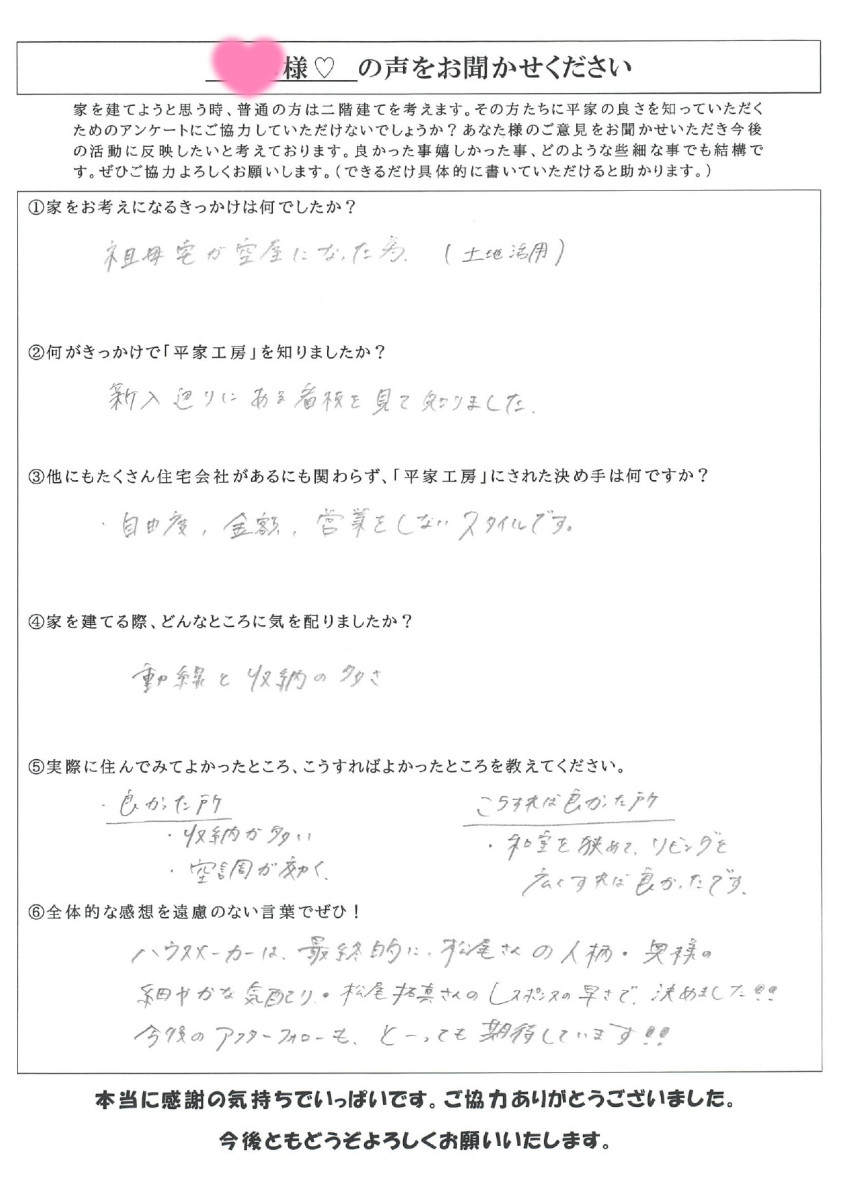 様♡ の声をお聞かせください
家を建てようと思う時、普通の方は二階建てを考えます。その方たちに平家の良さを知っていただく
ためのアンケートにご協力していただけないでしょうか？あなた様のご意見をお聞かせいただき今後
の活動に反映したいと考えております。良かった事嬉しかった事、どのような些細な事でも結構で
す。ぜひご協力よろしくお願いします。（できるだけ具体的に書いていただけると助かります。）
①家をお考えになるきっかけは何でしたか？
祖母宅が空屋になった為。（土地活用）
②何がきっかけで「平家工房」を知りましたか？
新入通りにある看板を見て知りました。
③他にもたくさん住宅会社があるにも関わらず、「平家工房」にされた決め手は何ですか？
・自由度，金額，営業をしないスタイルです。
④家を建てる際、どんなところに気を配りましたか？
動線と収納の多さ
⑤実際に住んでみてよかったところ、こうすればよかったところを教えてください。
・良かった所
・収納が多い
・空調が効く。
こうすれば良かった所
・和室を狭めて、リビングを
広くすれば良かったです。
⑥全体的な感想を遠慮のない言葉でぜひ！
ハウスメーカーは、最終的に、松尾さんの人柄・奥様の
細やかな気配り・松尾拓真さんのレスポンスの早さで、決めました!!
今後のアフターフォローも、とーっても期待しています!!
本当に感謝の気持ちでいっぱいです。ご協力ありがとうございました。
今後ともどうぞよろしくお願いいたします。